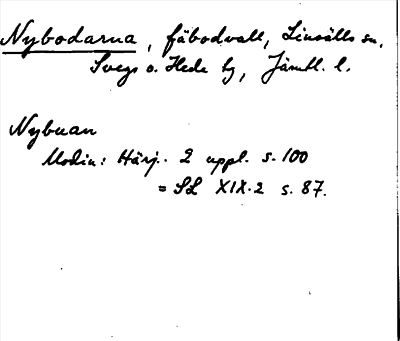 Nybodarna, fäbodvall, Linsälls sn,
Svegs o. Hede tg, Jämtl. l.
Nybuan
Modin: Härj. 2 uppl. s. 100
= SL XIX.2 s. 87.